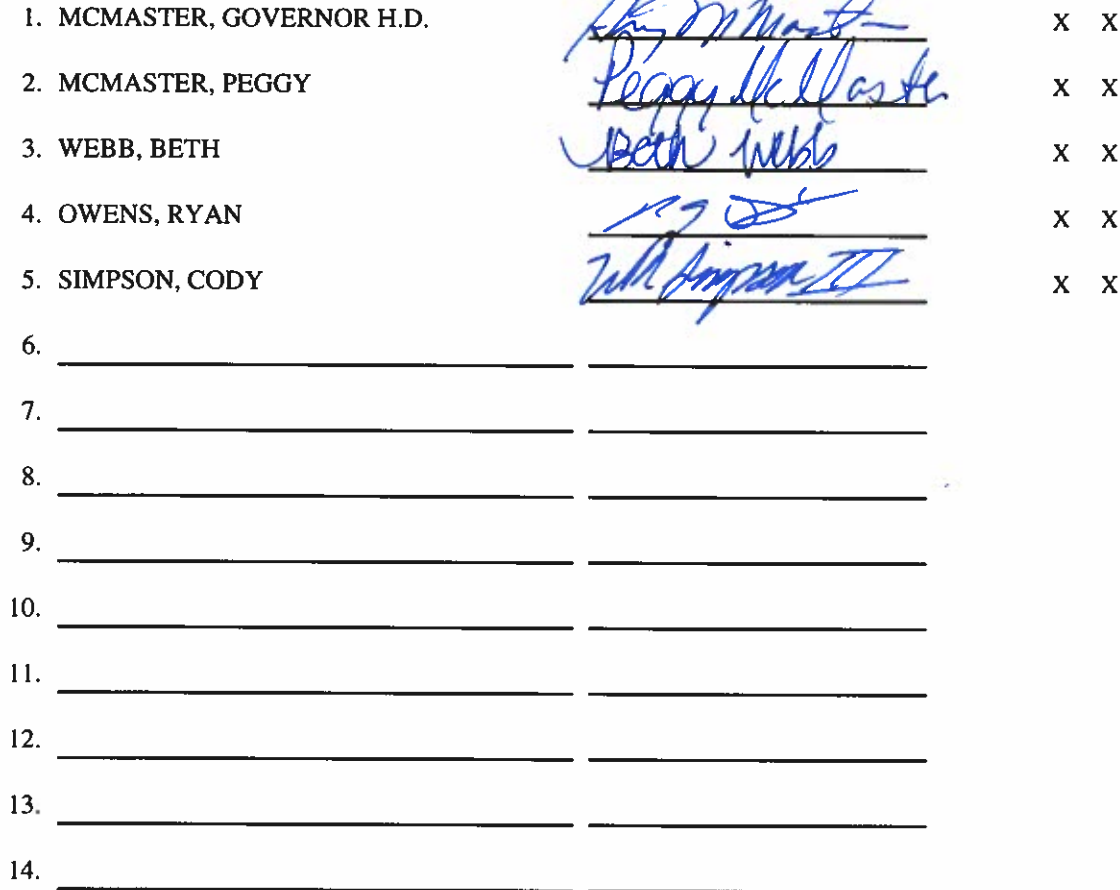 1. MCMASTER, GOVERNOR H.D. X X
2. MCMASTER, PEGGY Peggy McMaster X X
3. WEBB, BETH Beth Webb X X
4. OWENS, RYAN X X
5. SIMPSON, CODY Simpson III X X
6.
7.
8.
9.
10.
11.
12.
13.
14.